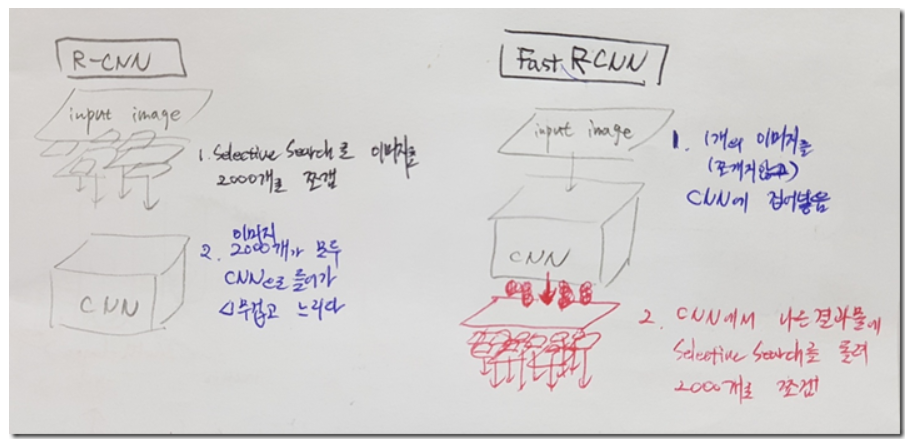 R-CNN
input image
1. Selective Search로 이미지를
2000개로 쪼갬
이미지
2. 2000개가 모두
CNN으로 들어가
무겁고 느리다
CNN
Fast R-CNN
input image
1. 1개의 이미지를
(쪼개지않고)
CNN에 집어넣음
CNN
2. CNN에서 나온결과물에
Selective Search를 돌려
2000개로 쪼갬!